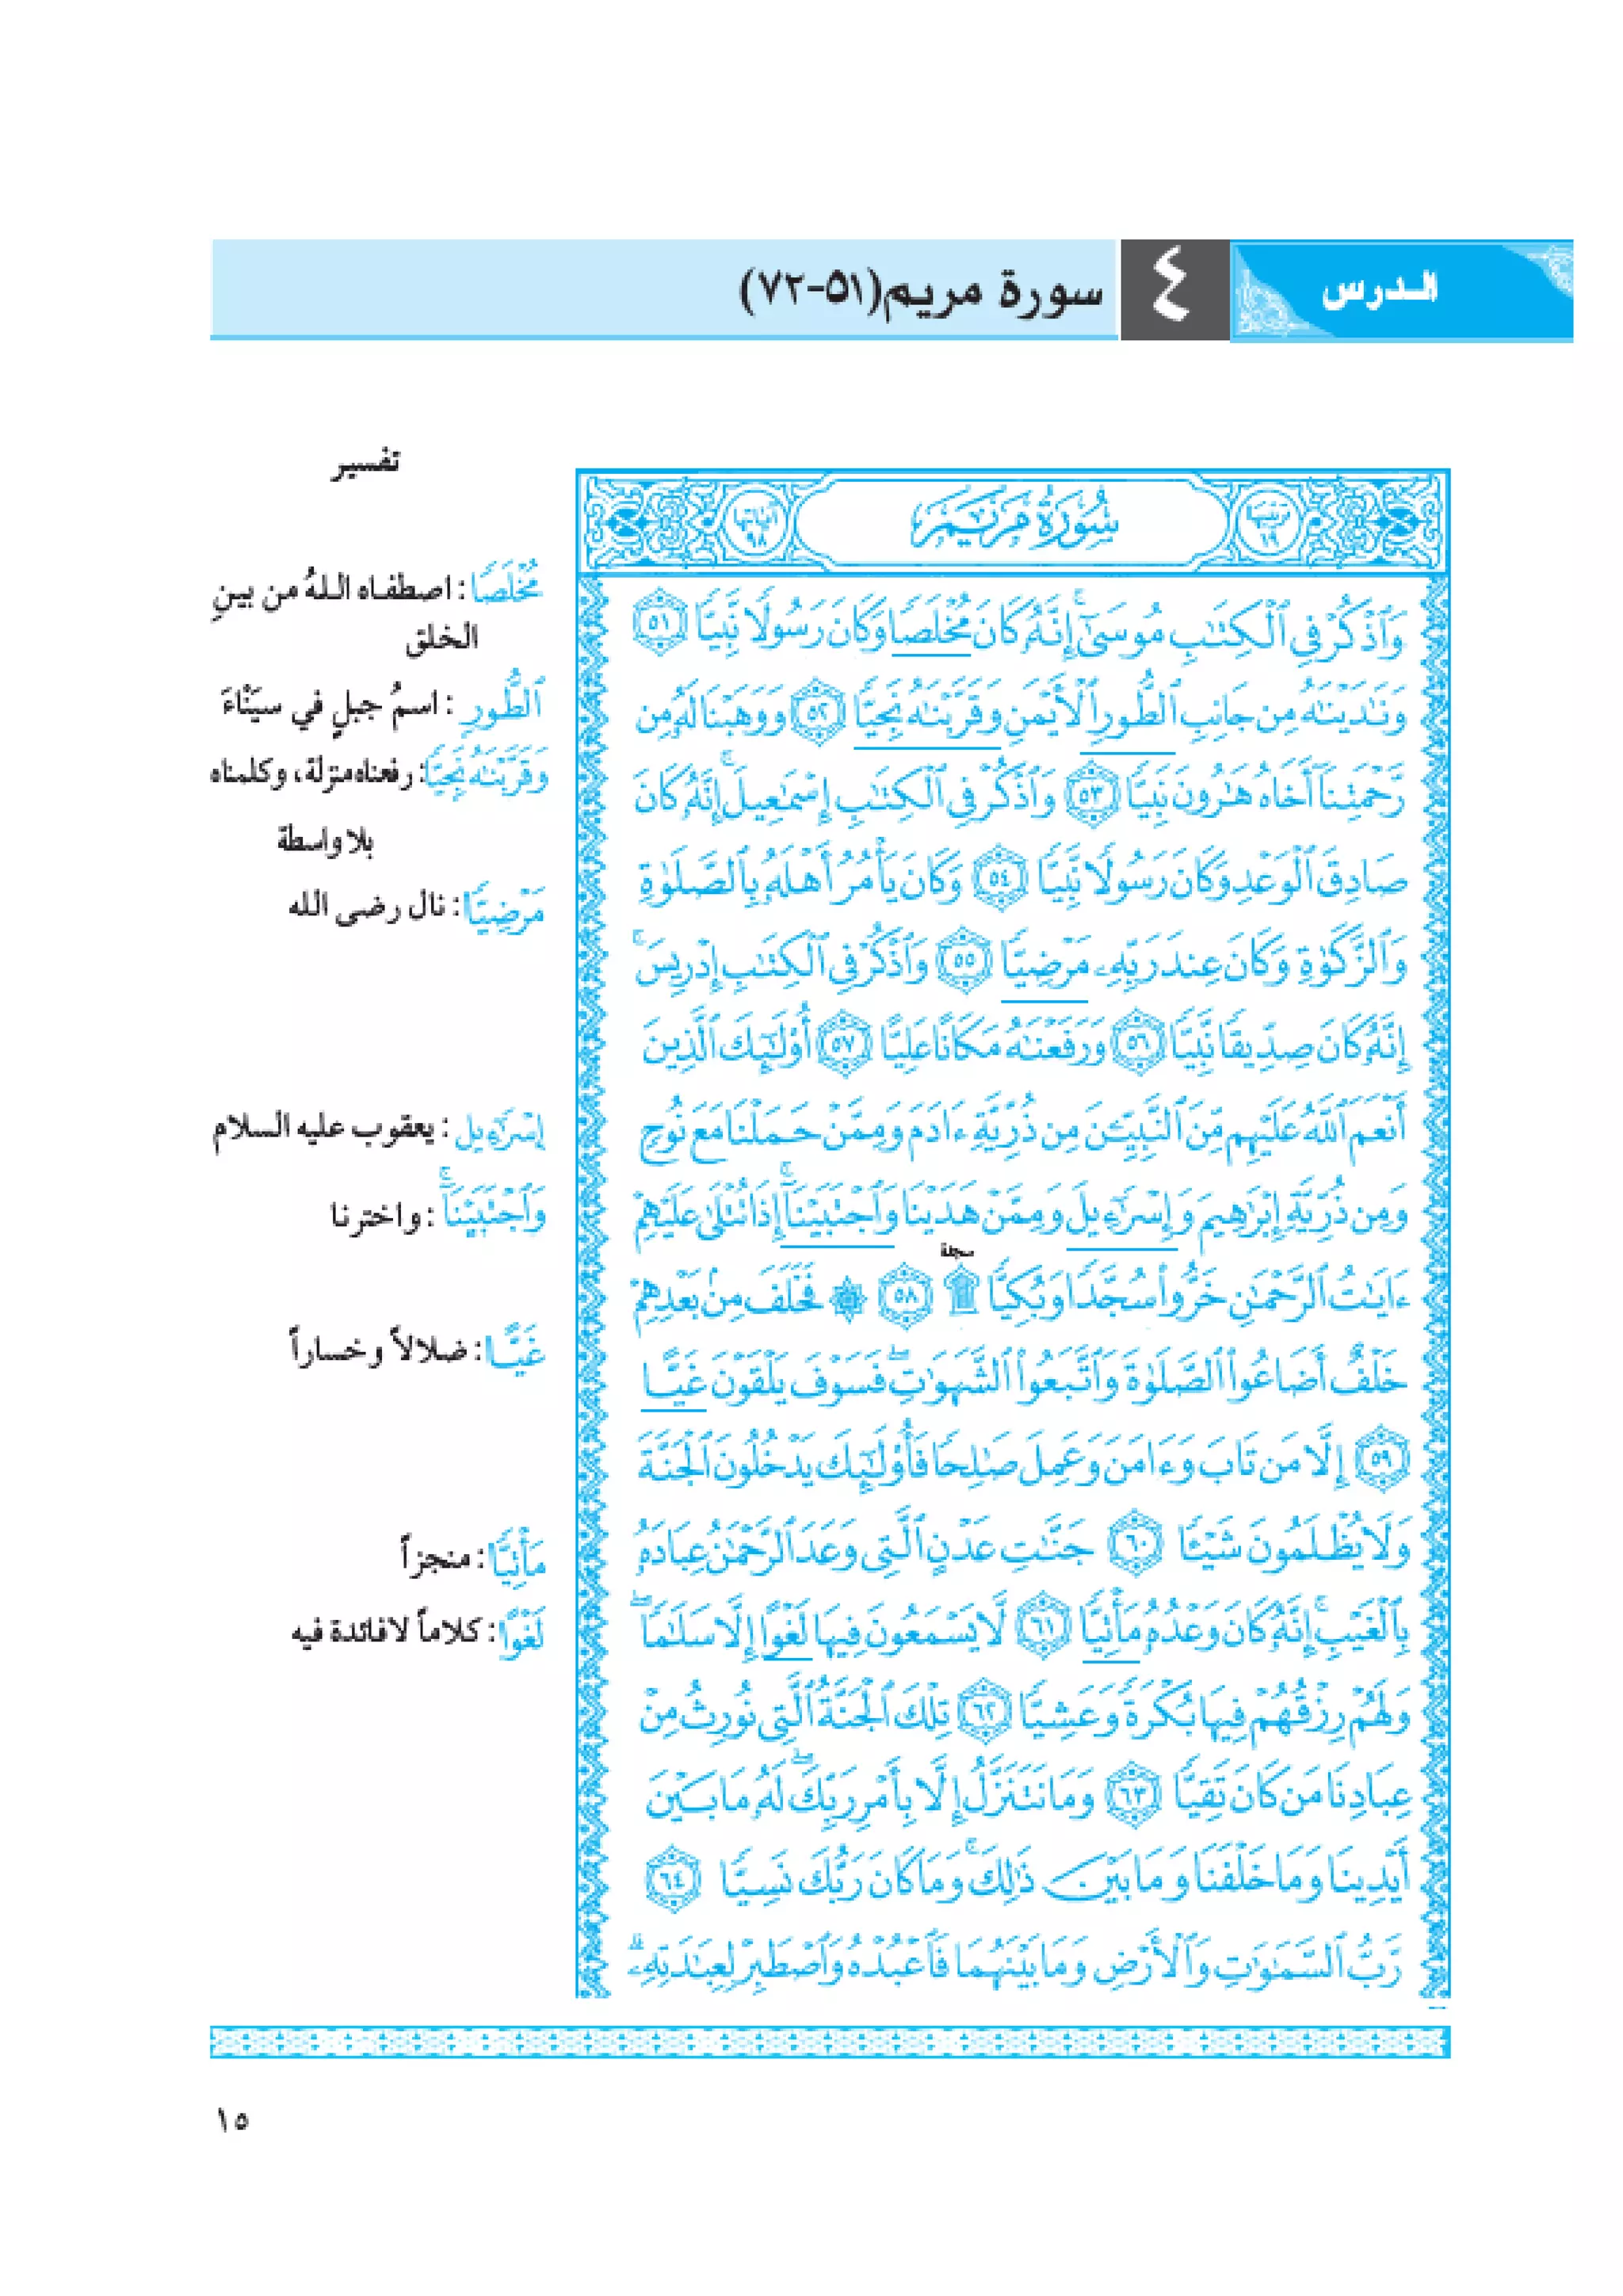 الدرس ٤ سورة مريم(٥١-٧٢)
تفسير
مرتيبها ١٩ سُورَةُ مَرْيَمَ آياتها ٩٨
وَٱذْكُرْ فِى ٱلْكِتَٰبِ مُوسَىٰٓ ۚ إِنَّهُۥ كَانَ مُخْلَصًا وَكَانَ رَسُولًا نَّبِيًّا ٥١
وَنَٰدَيْنَٰهُ مِن جَانِبِ ٱلطُّورِ ٱلْأَيْمَنِ وَقَرَّبْنَٰهُ نَجِيًّا ٥٢ وَوَهَبْنَا لَهُۥ مِن
رَّحْمَتِنَآ أَخَاهُ هَٰرُونَ نَبِيًّا ٥٣ وَٱذْكُرْ فِى ٱلْكِتَٰبِ إِسْمَٰعِيلَ ۚ إِنَّهُۥ كَانَ
صَادِقَ ٱلْوَعْدِ وَكَانَ رَسُولًا نَّبِيًّا ٥٤ وَكَانَ يَأْمُرُ أَهْلَهُۥ بِٱلصَّلَوٰةِ
وَٱلزَّكَوٰةِ وَكَانَ عِندَ رَبِّهِۦ مَرْضِيًّا ٥٥ وَٱذْكُرْ فِى ٱلْكِتَٰبِ إِدْرِيسَ ۚ
إِنَّهُۥ كَانَ صِدِّيقًا نَّبِيًّا ٥٦ وَرَفَعْنَٰهُ مَكَانًا عَلِيًّا ٥٧ أُو۟لَٰٓئِكَ ٱلَّذِينَ
أَنْعَمَ ٱللَّهُ عَلَيْهِم مِّنَ ٱلنَّبِيِّـۧنَ مِن ذُرِّيَّةِ ءَادَمَ وَمِمَّنْ حَمَلْنَا مَعَ نُوحٍ
وَمِن ذُرِّيَّةِ إِبْرَٰهِيمَ وَإِسْرَٰٓءِيلَ وَمِمَّنْ هَدَيْنَا وَٱجْتَبَيْنَآ ۚ إِذَا تُتْلَىٰ عَلَيْهِمْ
سجدة
ءَايَٰتُ ٱلرَّحْمَٰنِ خَرُّوا۟ سُجَّدًا وَبُكِيًّا ۩ ٥٨ ۞ فَخَلَفَ مِنۢ بَعْدِهِمْ
خَلْفٌ أَضَاعُوا۟ ٱلصَّلَوٰةَ وَٱتَّبَعُوا۟ ٱلشَّهَوَٰتِ ۖ فَسَوْفَ يَلْقَوْنَ غَيًّا
٥٩ إِلَّا مَن تَابَ وَءَامَنَ وَعَمِلَ صَٰلِحًا فَأُو۟لَٰٓئِكَ يَدْخُلُونَ ٱلْجَنَّةَ
وَلَا يُظْلَمُونَ شَيْـًٔا ٦٠ جَنَّٰتِ عَدْنٍ ٱلَّتِى وَعَدَ ٱلرَّحْمَٰنُ عِبَادَهُۥ
بِٱلْغَيْبِ ۚ إِنَّهُۥ كَانَ وَعْدُهُۥ مَأْتِيًّا ٦١ لَّا يَسْمَعُونَ فِيهَا لَغْوًا إِلَّا سَلَٰمًا ۖ
وَلَهُمْ رِزْقُهُمْ فِيهَا بُكْرَةً وَعَشِيًّا ٦٢ تِلْكَ ٱلْجَنَّةُ ٱلَّتِى نُورِثُ مِنْ
عِبَادِنَا مَن كَانَ تَقِيًّا ٦٣ وَمَا نَتَنَزَّلُ إِلَّا بِأَمْرِ رَبِّكَ ۖ لَهُۥ مَا بَيْنَ
أَيْدِينَا وَمَا خَلْفَنَا وَمَا بَيْنَ ذَٰلِكَ ۚ وَمَا كَانَ رَبُّكَ نَسِيًّا ٦٤
رَّبُّ ٱلسَّمَٰوَٰتِ وَٱلْأَرْضِ وَمَا بَيْنَهُمَا فَٱعْبُدْهُ وَٱصْطَبِرْ لِعِبَٰدَتِهِۦ ۚ
مُخْلَصًا : اصطفاه اللهُ من بينِ
الخلق
ٱلطُّورِ : اسمُ جبلٍ في سيْنَاءَ
وَقَرَّبْنَٰهُ نَجِيًّا: رفعناه منزلة، وكلمناه
بلا واسطة
مَرْضِيًّا: نال رضى الله
إِسْرَٰٓءِيل : يعقوب عليه السلام
وَٱجْتَبَيْنَآ ۚ : واخترنا
غَيًّا: ضلالاً وخساراً
مَأْتِيًّا: منجزاً
لَغْوًا: كلاماً لا فائدة فيه
١٥